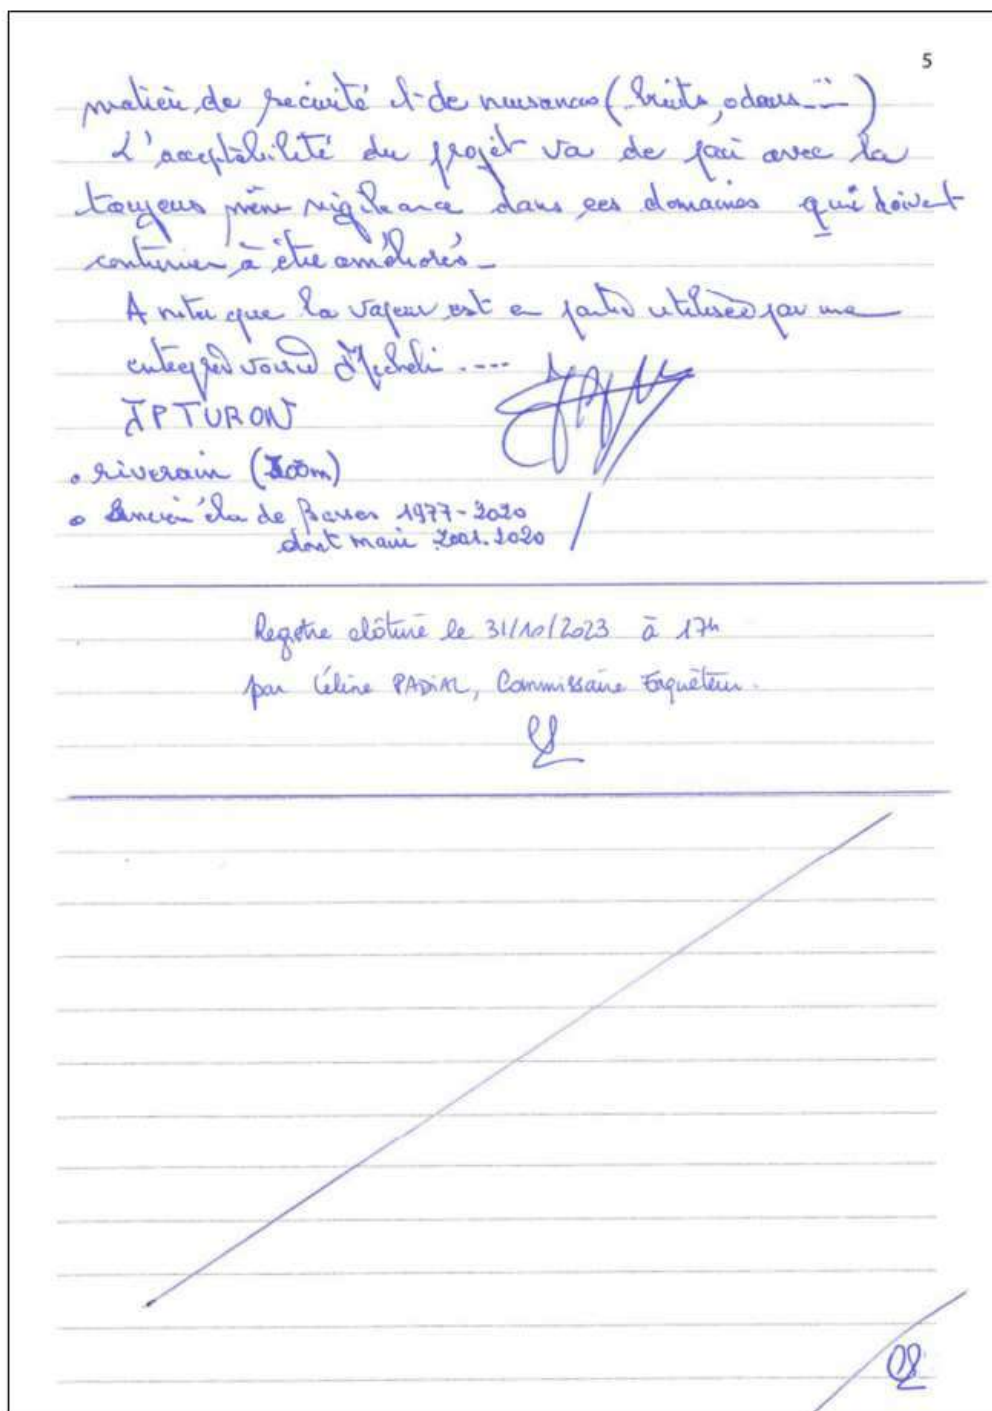 5
matière de sécurité et de nuisances (bruits, odeurs...)
L'acceptabilité du projet va de pair avec la
toujours même vigilance dans ces domaines qui doivent
continuer à être améliorés_
A noter que la vapeur est en partie utilisée par une
voisine ....
JP TURON
• riverain (
• Ancien élu de 1977-2020
dont maire 2001.2020
Registre clôturé le 31/10/2023 à 17h
par Céline PADIAL, Commissaire Enquêteur.